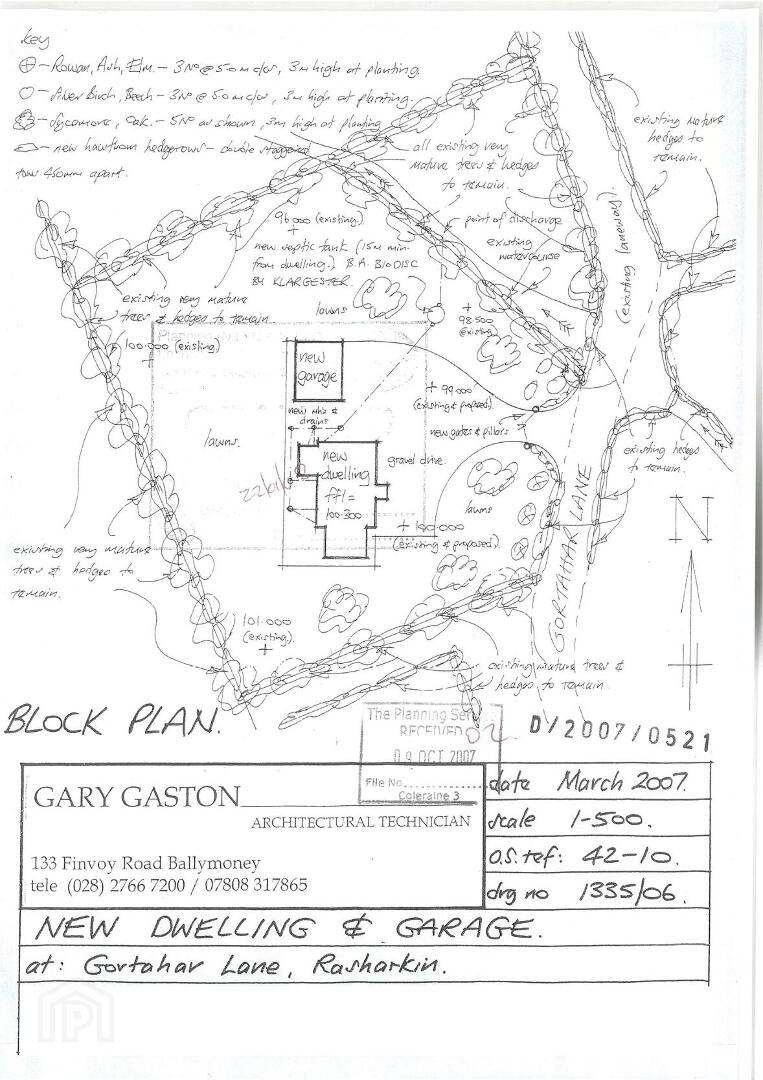 key
Rowan, Ash, Elm. - 3No @ 5.0m c/cs, 3m high at planting.
Silver Birch, Beech - 3No @ 5.0m c/cs, 3m high at planting.
Sycamore, Oak. - 5No as shown, 3m high at planting
new hawthorn hedgerows - double staggered
rows 450mm apart.
existing mature
hedges to
remain.
all existing very
mature trees & hedges
to remain.
96.000 (existing)
new septic tank (15m min.
from dwelling.) B.A. BIODISC
BY KLARGESTER
point of discharge
existing
watercourse
(existing laneway).
existing very mature
trees & hedges to remain
lawns
98.500
(existing)
100.000 (existing)
new
garage
99.000
(existing & proposed)
new mh's &
drains
new gates & pillars
lawns.
new
dwelling
ffl =
100.300
gravel drive.
existing hedges
to remain.
lawns
100.000
(existing & proposed).
GORTAHAR LANE
N
existing very mature
trees & hedges to
remain.
101.000
(existing).
existing mature trees &
hedges to remain.
BLOCK PLAN.
The Planning Serv
RECEIVED
02
09 OCT 2007
File No
Coleraine 3
D/2007/0521
GARY GASTON
ARCHITECTURAL TECHNICIAN
133 Finvoy Road Ballymoney
tele (028) 2766 7200 / 07808 317865
date March 2007.
scale 1-500.
o.s. ref: 42-10.
drg no 1335/06.
NEW DWELLING & GARAGE.
at: Gortahar Lane, Rasharkin.